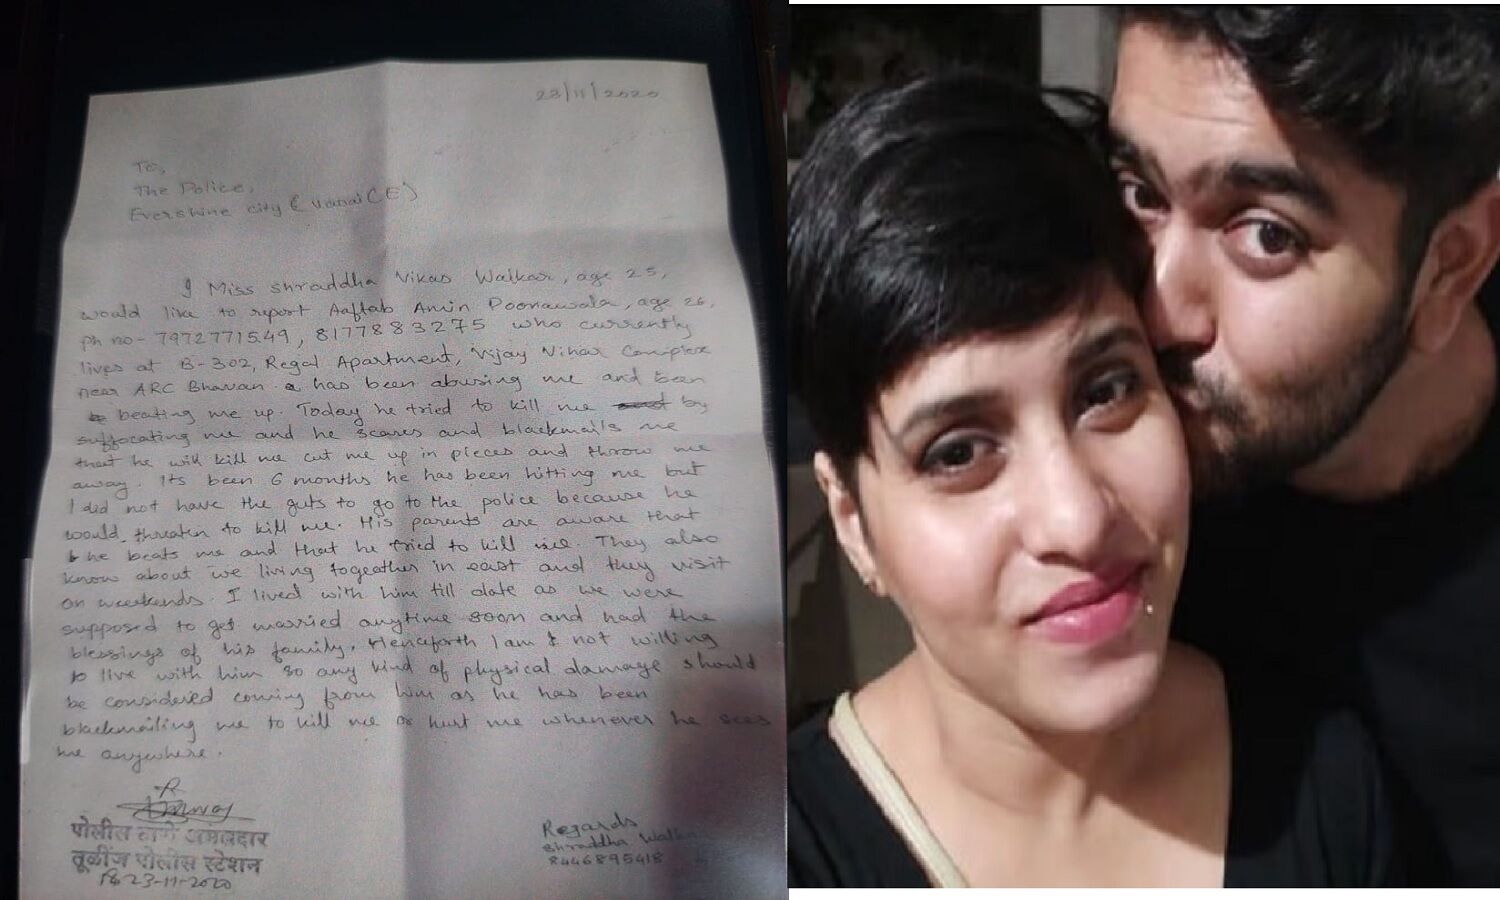 23/11/2020
To,
The Police,
Evershine city (Vasai (E)
I Miss Shraddha Vikas Walkar, age 25,
would like to report Aaftab Amin Poonawala, age 26,
ph no - 7972771549, 8177883275 who currently
lives at B-302, Regal Apartment, Vijay Vihar Complex
near ARC Bhavan has been abusing me and been
beating me up. Today he tried to kill me by
suffocating me and he scares and blackmails me
that he will kill me cut me up in pieces and throw me
away. Its been 6 months he has been hitting me but
I did not have the guts to go to the police because he
would threaten to kill me. His parents are aware that
he beats me and that he tried to kill me. They also
know about we living togeather in and they visit
on weekends. I lived with him till date as we were
supposed to get married anytime soon and had the
blessings of his family. Henceforth I am not willing
to live with him so any kind of physical damage should
be considered coming from him as he has been
blackmailing me to kill me or hurt me whenever he sees
me anywhere.
पोलीस ठाणे अंमलदार
तूळींज पोलीस स्टेशन
23-11-2020
Regards
Shraddha Walkar
8446895418